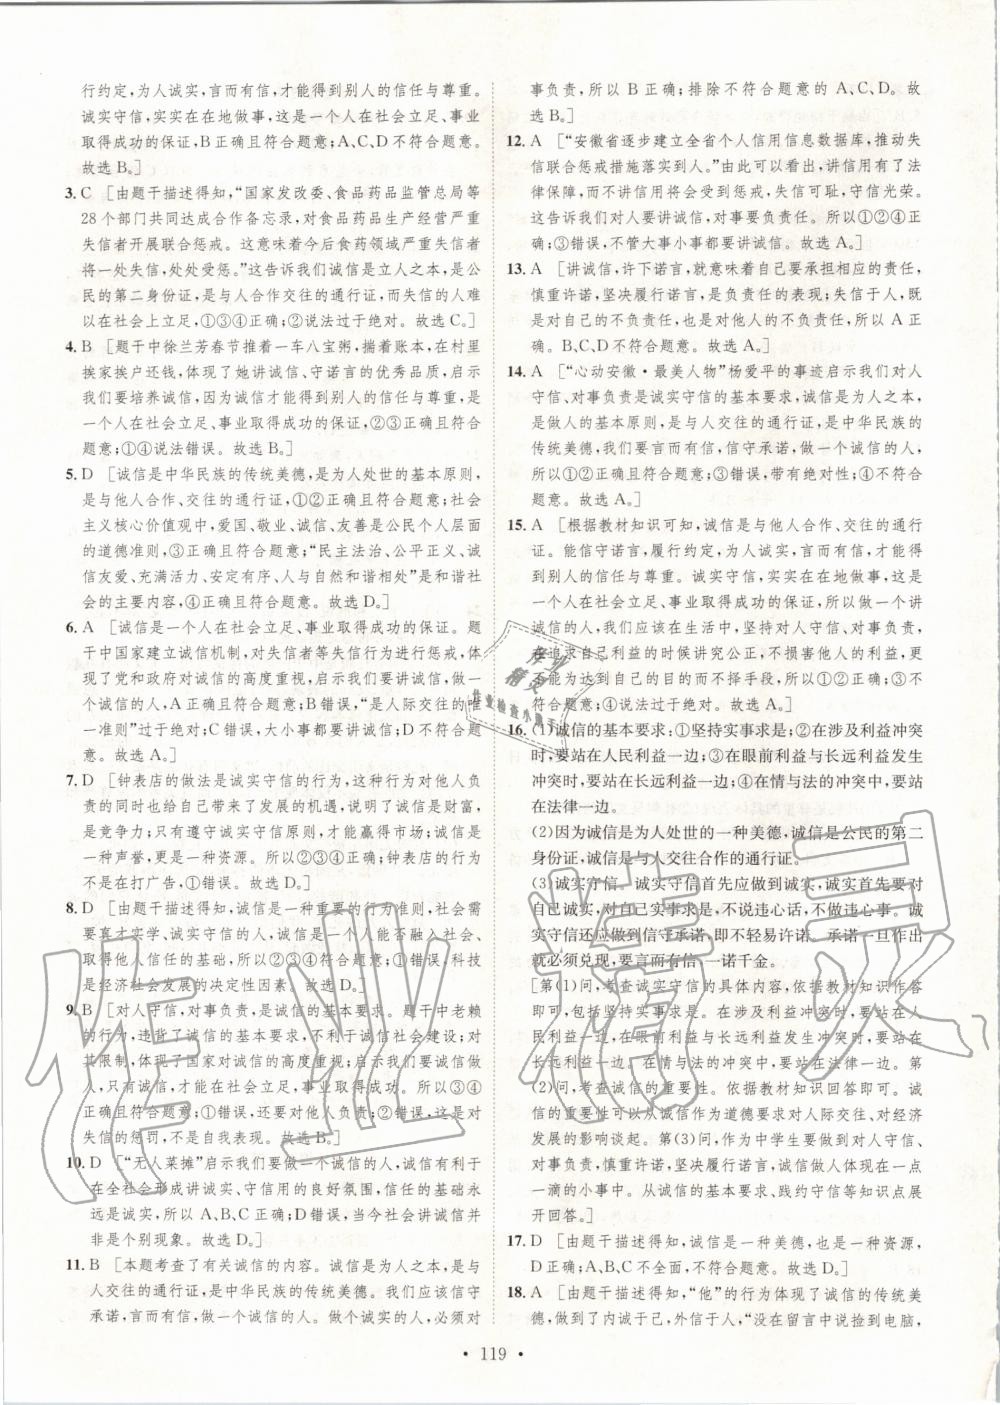 行约定,为人诚实,言而有信,才能得到别人的信任与尊重。
诚实守信,实实在在地做事,这是一个人在社会立足、事业
取得成功的保证,B正确且符合题意;A、C、D不符合题意。
故选B。]
3. C [由题干描述得知,“国家发改委、食品药品监管总局等
28个部门共同达成合作备忘录,对食品药品生产经营严重
失信者开展联合惩戒。这意味着今后食药领域严重失信者
将一处失信,处处受惩。”这告诉我们诚信是立人之本,是公
民的第二身份证,是与人合作交往的通行证,而失信的人难
以在社会上立足,①③④正确;②说法过于绝对。故选C。]
4. B [题干中徐兰芳春节推着一车八宝粥,揣着账本,在村里
挨家挨户还钱,体现了她讲诚信、守诺言的优秀品质,启示
我们要培养诚信,因为诚信才能得到别人的信任与尊重,是
一个人在社会立足、事业取得成功的保证,②③正确且符合
题意;①④说法错误。故选B。]
5. D [诚信是中华民族的传统美德,是为人处世的基本原则,
是与他人合作、交往的通行证,①②正确且符合题意;社会
主义核心价值观中,爱国、敬业、诚信、友善是公民个人层面
的道德准则,③正确且符合题意;“民主法治、公平正义、诚
信友爱、充满活力、安定有序、人与自然和谐相处”是和谐社
会的主要内容,④正确且符合题意。故选D。]
6. A [诚信是一个人在社会立足、事业取得成功的保证。题
干中国家建立诚信机制,对失信者等失信行为进行惩戒,体
现了党和政府对诚信的高度重视,启示我们要做一个诚
信的人,A正确且符合题意;B错误,“是人际交往的唯
一准则”过于绝对;C错误,大小事都要讲诚信;D不符合题
意。故选A。]
7. D [钟表店的做法是诚实守信的行为,这种行为对他人负
责的同时也给自己带来了发展的机遇,说明了诚信是财富,
是竞争力;只有遵守诚实守信原则,才能赢得市场;诚信是
一种声誉,更是一种资源。所以②③④正确;钟表店的行为
不是在打广告,①错误。故选D。]
8. D [由题干描述得知,诚信是一种重要的行为准则,社会需
要真才实学、诚实守信的人,诚信是一个人能否融入社会、
取得他人信任的基础,所以①②③正确;④错误,科技
是经济社会发展的决定性因素。故选D。]
9. B [对人守信,对事负责,是诚信的基本要求。题干中老赖
的行为,违背了诚信的基本要求,不利于诚信社会建设;对
其限制,体现了国家对诚信的高度重视;启示我们要诚信做
人,只有诚信,才能在社会立足,事业取得成功。所以③④
正确且符合题意;①错误,还要对他人负责;②错误,这是对
失信的惩罚,不是自我表现。故选B。]
10. D [“无人菜摊”启示我们要做一个诚信的人,诚信有利于
在全社会形成讲诚实、守信用的良好氛围,信任的基础永
远是诚实,所以A、B、C正确;D错误,当今社会讲诚信并
非是个别现象。故选D。]
11. B [本题考查了有关诚信的内容。诚信是为人之本,是与
人交往的通行证,是中华民族的传统美德。我们应该信守
承诺,做一个诚信的人。做个诚实的人,必须对
事负责,所以B正确;排除不符合题意的A、C、D。故
选B。]
12. A [“安徽省逐步建立全省个人信用信息数据库,推动失
信联合惩戒措施落实到人。”由此可以看出,讲信用有了法
律保障,而不讲信用将会受到惩戒,失信可耻,守信光荣。
这告诉我们对人要讲诚信,对事要负责任。所以①②④正
确;③错误,不管大事小事都要讲诚信。故选A。]
13. A [讲诚信,许下诺言,就意味着自己要承担相应的责任,
慎重许诺,坚决履行诺言,是负责任的表现;失信于人,既
是对自己的不负责任,也是对他人的不负责任。所以A正
确。B、C、D不符合题意。故选A。]
14. A [“心动安徽·最美人物”杨爱平的事迹启示我们对人
守信、对事负责是诚实守信的基本要求,诚信是为人之本,
是做人的基本原则,是与人交往的通行证,是中华民族的
传统美德,我们要言而有信,信守承诺,做一个诚信的人,
所以①②正确且符合题意;③错误,带有绝对性;④不符合
题意。故选A。]
15. A [根据教材知识可知,诚信是与他人合作、交往的通行
证。能信守诺言,履行约定,为人诚实,言而有信,才能得
到别人的信任与尊重。诚实守信,实实在在做事,这是一
个人在社会立足、事业取得成功的保证。所以做一个讲
诚信的人,我们应该在生活中,坚持对人守信、对事负责,
在追求自己利益的时候讲究公正,不损害他人的利益,更
不能为达到自己的目的而不择手段,所以①②④正确;③
说法过于绝对。故选A。]
16. (1)诚信的基本要求:①坚持实事求是;②在涉及利益冲突
时,要站在人民利益一边;③在眼前利益与长远利益发生
冲突时,要站在长远利益一边;④在情与法的冲突中,要站
在法律一边。
(2)因为诚信是为人处世的一种美德,诚信是公民的第二
身份证,诚信是与人交往合作的通行证。
(3)诚实守信。诚实守信首先应做到诚实,诚实首先要对
自己诚实,对自己实事求是,不说违心话,不做违心事。诚
实守信还应做到信守承诺,即不轻易许诺、承诺一旦作出
就必须兑现,要言而有信,一诺千金。
[第(1)问,考查诚实守信的具体内容,依据知识作答
即可,包括坚持实事求是。在涉及利益冲突时,站在人
民利益一边,在眼前利益与长远利益发生冲突时,站在长
远利益一边。在情与法的冲突中,站在法律一边。第
(2)问,考查诚信的重要性。依据教材知识回答即可。诚
信的重要性可以从诚信作为道德要求对人际交往、对经济
发展的影响谈起。第(3)问,作为中学生要做到对人守信、
对事负责,慎重许诺,坚决履行诺言,诚信做人体现在一点
一滴的小事中。从诚信的基本要求、践约守信等知识点展
开回答。]
17. D [由题干描述得知,诚信是一种美德,也是一种资源,
D正确;A、B、C不全面,不符合题意。故选D。]
18. A [由题干描述得知,“他”的行为体现了诚信的传统美
德,做到了内诚于己,外信于人,“没在留言中说捡到电脑,
• 119 •